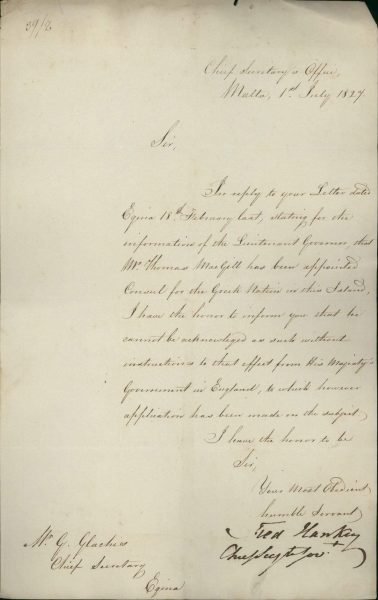 39/2
Chief Secretary's Office,
Malta, 1st July 1827.
Sir,
In reply to your Letter dated
Egina 18th February last, stating for the
information of the Lieutenant Governor, that
Mr. Thomas MacGill has been appointed
Consul for the Greek Nation in this Island,
I have the honor to inform you that he
cannot be acknowledged as such without
instructions to that effect from His Majesty's
Government in England, to which however
application has been made on the subject.
I have the honor to be
Sir,
Your Most Obedient
humble Servant
Fred Hankey
Chief Sec. to Govt.
Mr. G. Glachis
Chief Secretary
Egina